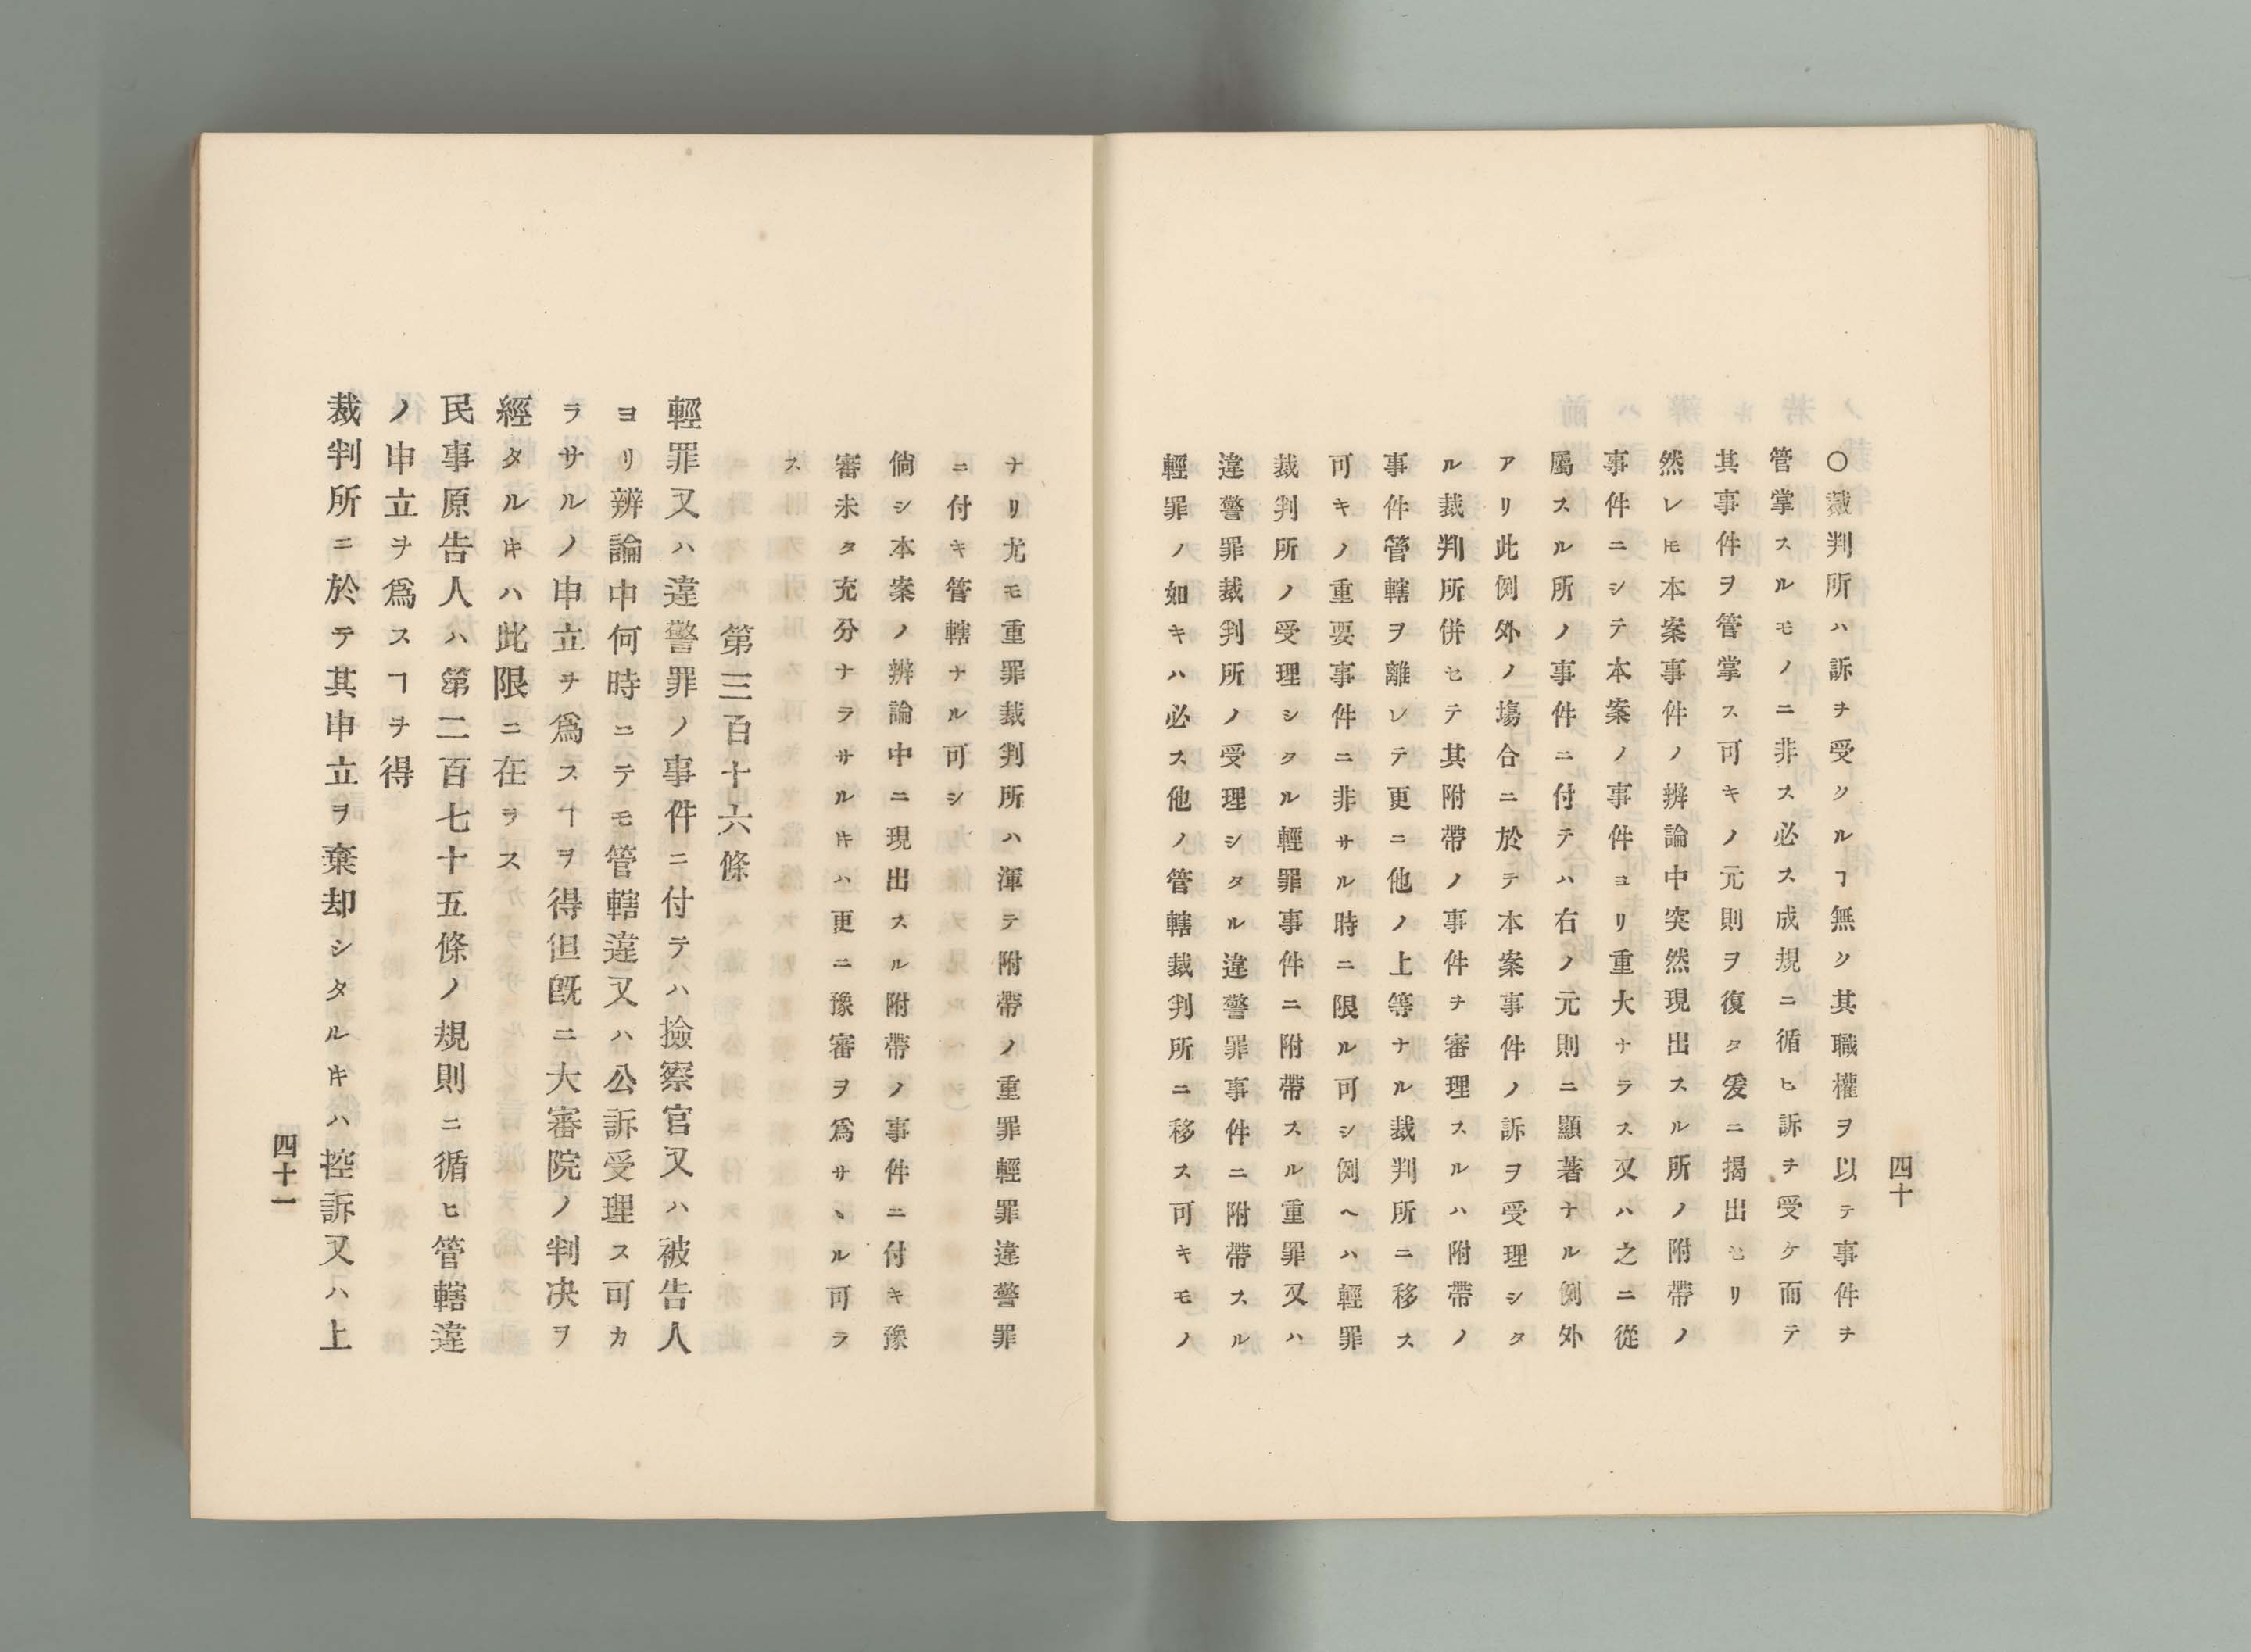 四十
〇裁判所ハ訴ヲ受クルヿ無ク其職權ヲ以テ事件ヲ
管掌スルモノニ非ス必ス成規ニ循ヒ訴ヲ受ケ而テ
其事件ヲ管掌ス可キノ元則ヲ復タ爰ニ揭出セリ
然レ𪜈本案事件ノ辨論中突然現出スル所ノ附帶ノ
事件ニシテ本案ノ事件ヨリ重大ナラス又ハ之ニ從
屬スル所ノ事件ニ付テハ右ノ元則ニ顯著ナル例外
アリ此例外ノ塲合ニ於テ本案事件ノ訴ヲ受理シタ
ル裁判所併セテ其附帶ノ事件ヲ審理スルハ附帶ノ
事件管轄ヲ離レテ更ニ他ノ上等ナル裁判所ニ移ス
可キノ重要事件ニ非サル時ニ限ル可シ例ヘハ輕罪
裁判所ノ受理シタル輕罪事件ニ附帶スル重罪又ハ
違警罪裁判所ノ受理シタル違警罪事件ニ附帶スル
輕罪ノ如キハ必ス他ノ管轄裁判所ニ移ス可キモノ
ナリ尤モ重罪裁判所ハ渾テ附帶ノ重罪輕罪違警罪
ニ付キ管轄ナル可シ
倘シ本案ノ辨論中ニ現出スル附帶ノ事件ニ付キ豫
審未タ充分ナラサルキハ更ニ豫審ヲ爲サヽル可ラ
ス
第三百十六條
輕罪又ハ違警罪ノ事件ニ付テハ撿察官又ハ被告人
ヨリ辨論中何時ニテモ管轄違又ハ公訴受理ス可カ
ラサルノ申立ヲ爲スヿヲ得但旣ニ大審院ノ判决ヲ
經タルキハ此限ニ在ラス
民事原告人ハ第二百七十五條ノ規則ニ循ヒ管轄違
ノ申立ヲ爲スヿヲ得
裁判所ニ於テ其申立ヲ棄却シタルキハ控訴又ハ上
四十一